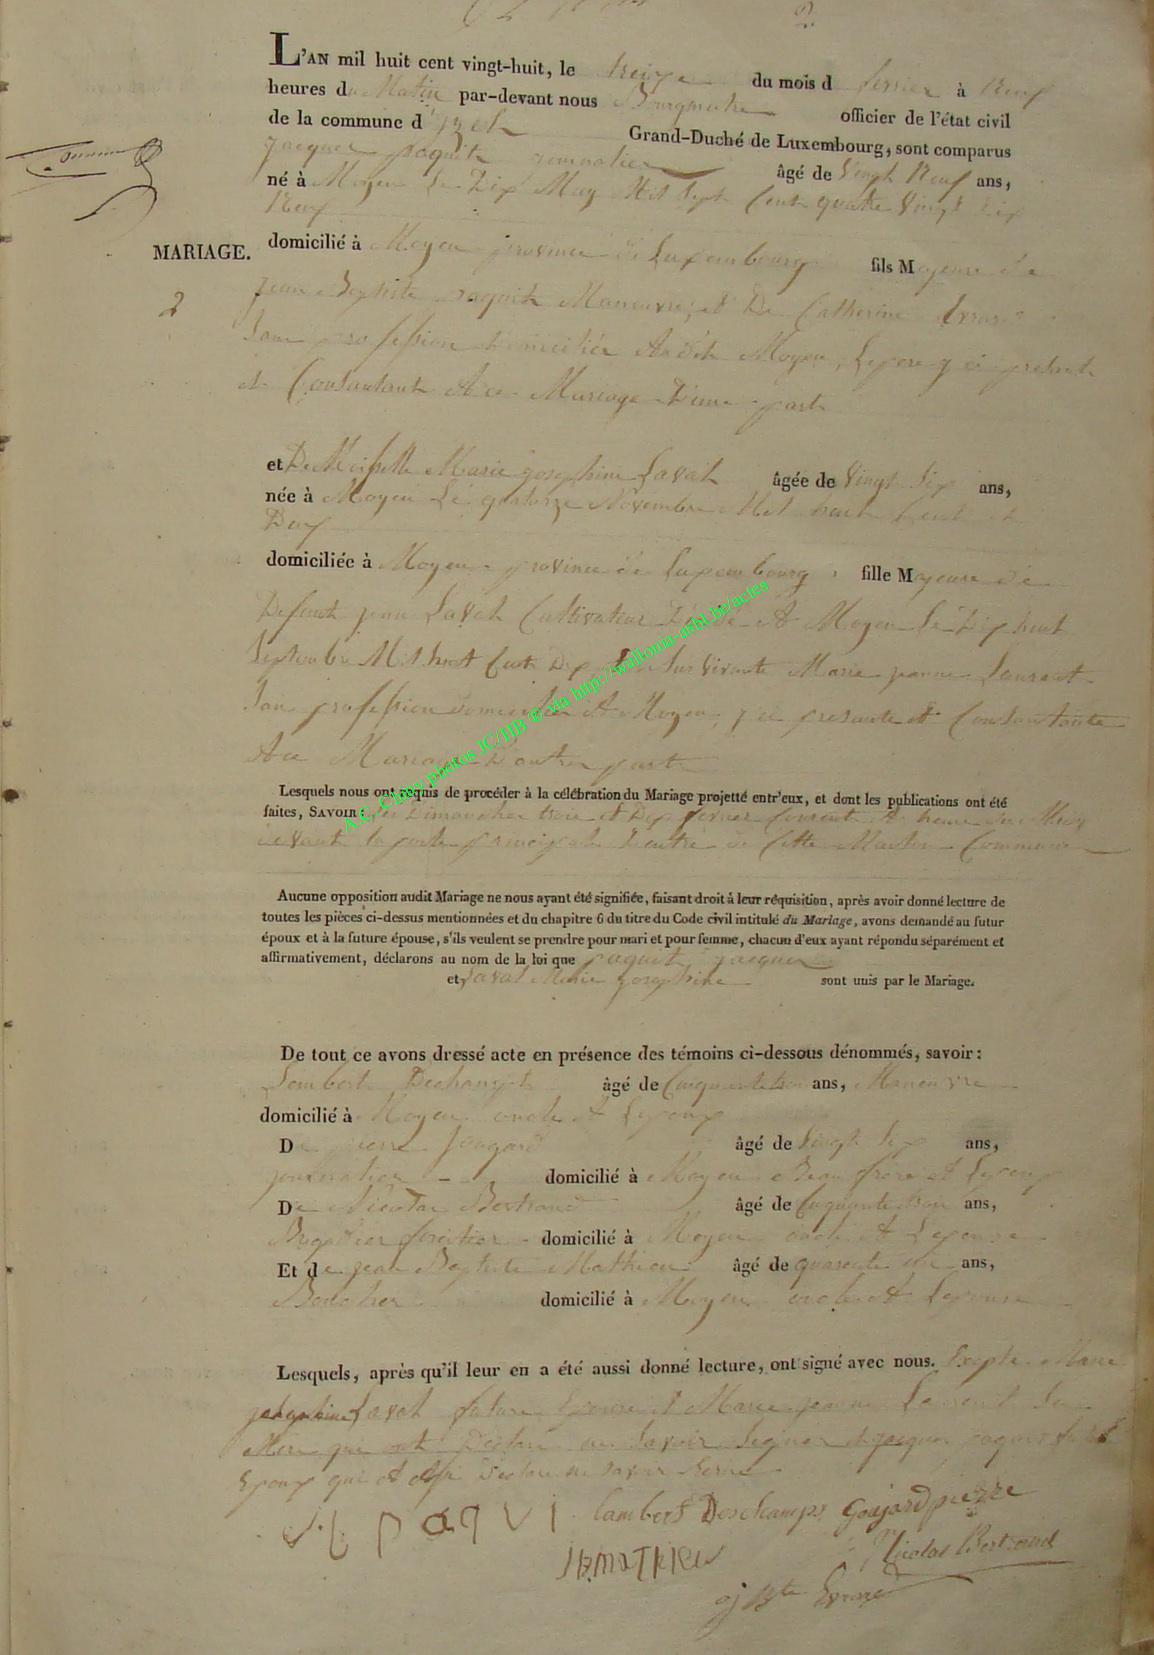 L'AN mil huit cent vingt-huit, le treize du mois d fevrier à Neuf
heures du Matin par-devant nous Bourgmestre officier de l'état civil
de la commune d'Izel Grand-Duché de Luxembourg, sont comparus
Jacques paquit journalier âgé de Vingt Neuf ans,
né à Moyen Le Dix May Mil Sept Cent quatre Vingt Dix
Neuf
MARIAGE.
2
domicilié à Moyen province de Luxembourg fils Majeure de
Jean Baptiste paquit Manouvre, et De Catherine
Sans profession domiciliés Audit Moyen, Le pere y ci present
et Consentant A ce Mariage D'une part
et DeMoiselle Marie josephine Laval âgée de Vingt Six ans,
née à Moyen Le quatorze Novembre Mil huit Cent et
Deux
domiciliée à Moyen province de Luxembourg, fille Majeure de
Defunt jean Laval Cultivateur Décédé A Moyen Le Dix huit
Septembre Mil huit Cent Dix Survivante Marie jeanne Laurent
Sans profession domiciliée A Moyen, y ci presente et Consentante
A ce Mariage D'autre part
A.C. Chiny photos JC/HB © via http://wallonia-asbl.be/actes
Lesquels nous ont requis de procéder à la célébration du Mariage projetté entr'eux, et dont les publications ont été
faites, SAVOIR: Les Dimanches trois et Dix fevrier Courant A heure de Midy
devant la porte principale D'entrée de Cette Maison Commune
Aucune opposition audit Mariage ne nous ayant été signifiée, faisant droit à leur réquisition, après avoir donné lecture de
toutes les pièces ci-dessus mentionnées et du chapitre 6 du titre du Code civil intitulé du Mariage, avons demandé au futur
époux et à la future épouse, s'ils veulent se prendre pour mari et pour femme, chacun d'eux ayant répondu séparément et
affirmativement, déclarons au nom de la loi que paquit jacques
et Laval Marie josephine sont unis par le Mariage.
De tout ce avons dressé acte en présence des témoins ci-dessous dénommés, savoir:
Lambert Dechamps âgé de Cinquante trois ans, Manouvre
domicilié à Moyen oncle A Lepoux
De pierre Goujard âgé de Vingt Six ans,
journalier domicilié à Moyen Beau frere A Lepoux
De Nicolas Bertrand âgé de Cinquante trois ans,
Brigadier forestier domicilié à Moyen oncle A Lepouse
Et de jean Baptiste Mathieu âgé de quarante un ans,
Boucher domicilié à Moyen oncle A Lepouse
Lesquels, après qu'il leur en a été aussi donné lecture, ont signé avec nous. Excepté Marie
josephine Laval future Epouse et Marie jeanne Laurent Sa
Mere qui ont Declaré ne Savoir Signer et jacques paquit futur
Epoux qui A Aussi Declaré ne Savoir
paqui Lambert Deschamps Goujard pierre
JB MATHIEU Nicolas Bertrand